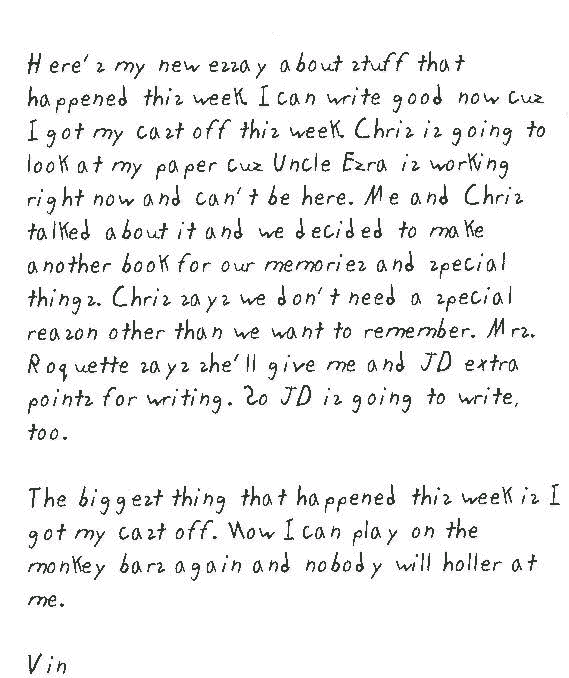 Here's my new essay about stuff that
happened this week. I can write good now cuz
I got my cast off this week. Chris is going to
look at my paper cuz Uncle Ezra is working
right now and can't be here. Me and Chris
talked about it and we decided to make
another book for our memories and special
things. Chris says we don't need a special
reason other than we want to remember. Mrs.
Roquette says she'll give me and JD extra
points for writing. So JD is going to write,
too.

The biggest thing that happened this week is I
got my cast off. Now I can play on the
monkey bars again and nobody will holler at
me.

Vin